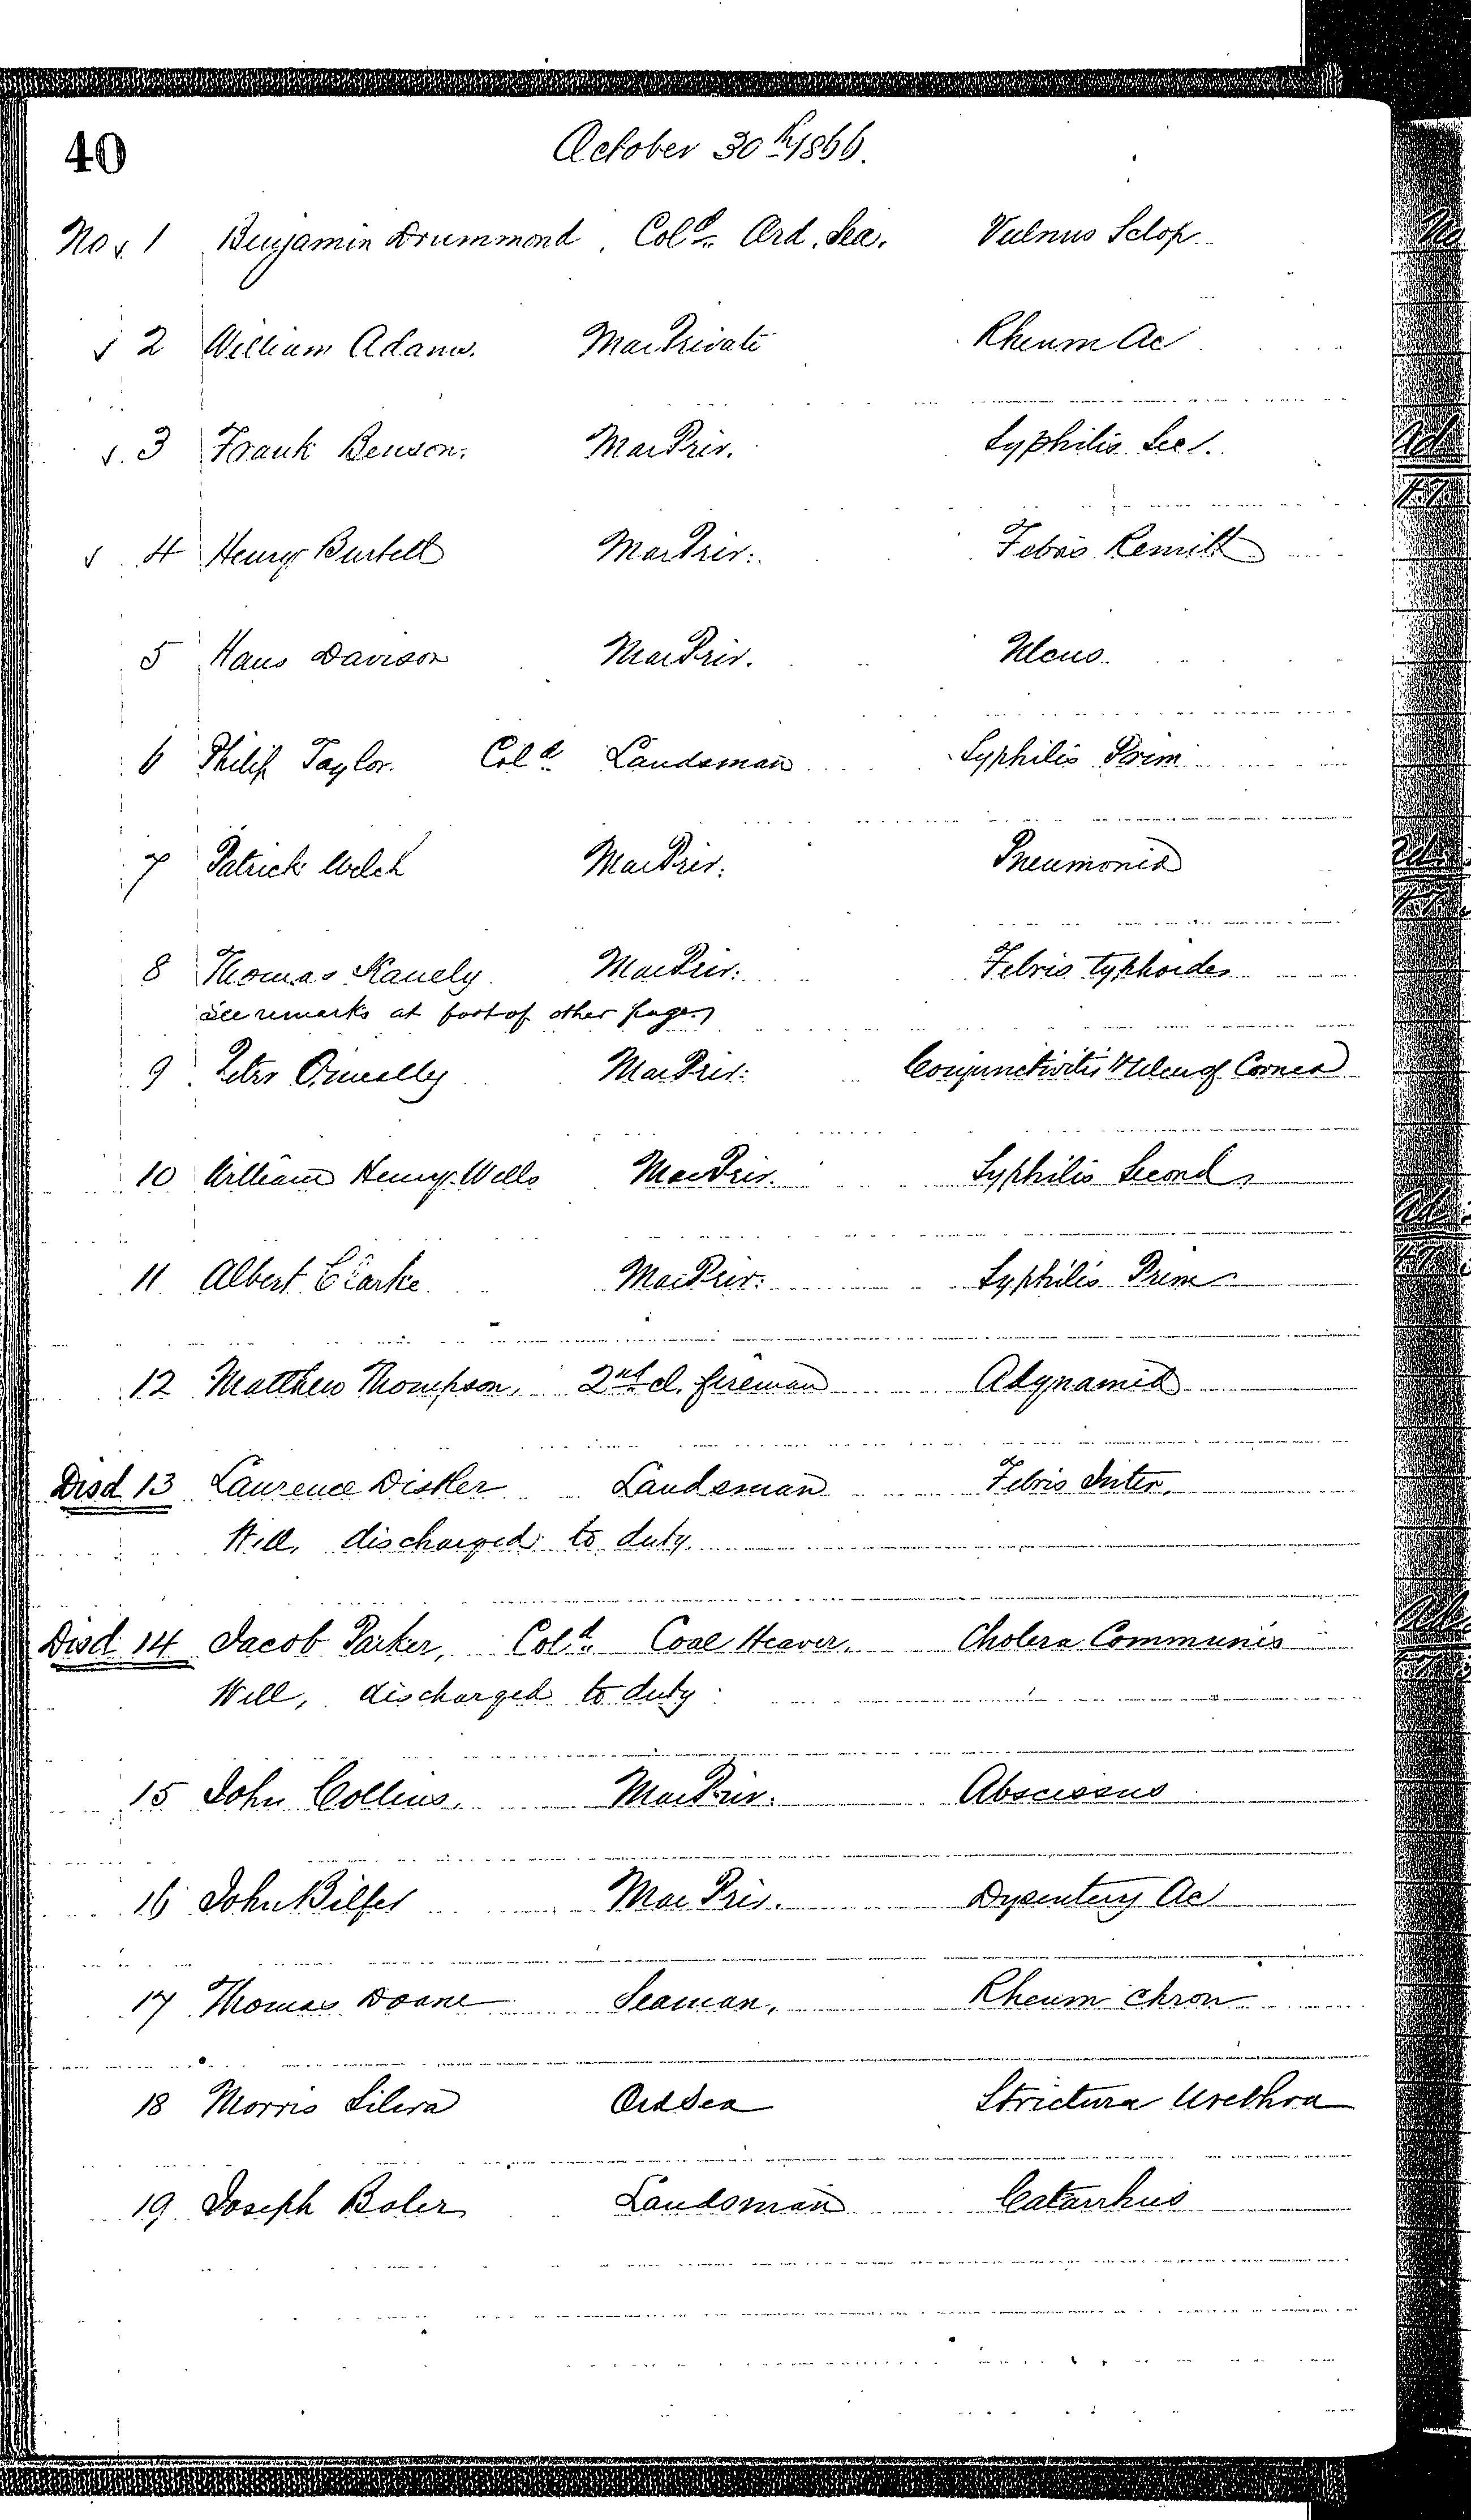 40
October 30th 1866.
No. 1 Benjamin Drummond. Cold. Ord. Sea. Vulnus Sclop.
2 William Adams. Mar Private Rheum Ac
3 Frank Benson. Mar Priv. Syphilis Sec.
4 Henry Burtell Mar Priv. Febris Remitt
5 Hans Davison Mar Priv. Ulcus.
6 Philip Taylor. Cold Landsman Syphilis Prim
7 Patrick Welch Mar Priv. Pneumonia
8 Thomas Kanely Mar Priv. Febris typhoides
See remarks at foot of other page
9 Peter Mar Priv. Conjunctivitis & Ulcer of Cornea
10 William Henry Wells Mar Priv. Syphilis Second
11 Albert Clarke Mar Priv. Syphilis Prim
12 Matthew Thompson, 2nd cl. fireman Adynamia
Disd 13 Laurence Distler Landsman Febris Inter.
Well, discharged to duty.
Disd 14 Jacob Parker, Cold. Coal Heaver, Cholera Communis
Well, discharged to duty
15 John Collins, Mar Priv. Abscessus
16 John Bilfer Mar Priv. Dysentery Ac
17 Thomas Doane Seaman, Rheum chron
18 Morris Silva Ord Sea Strictura Urethra
19 Joseph Boler Landsman Catarrhus